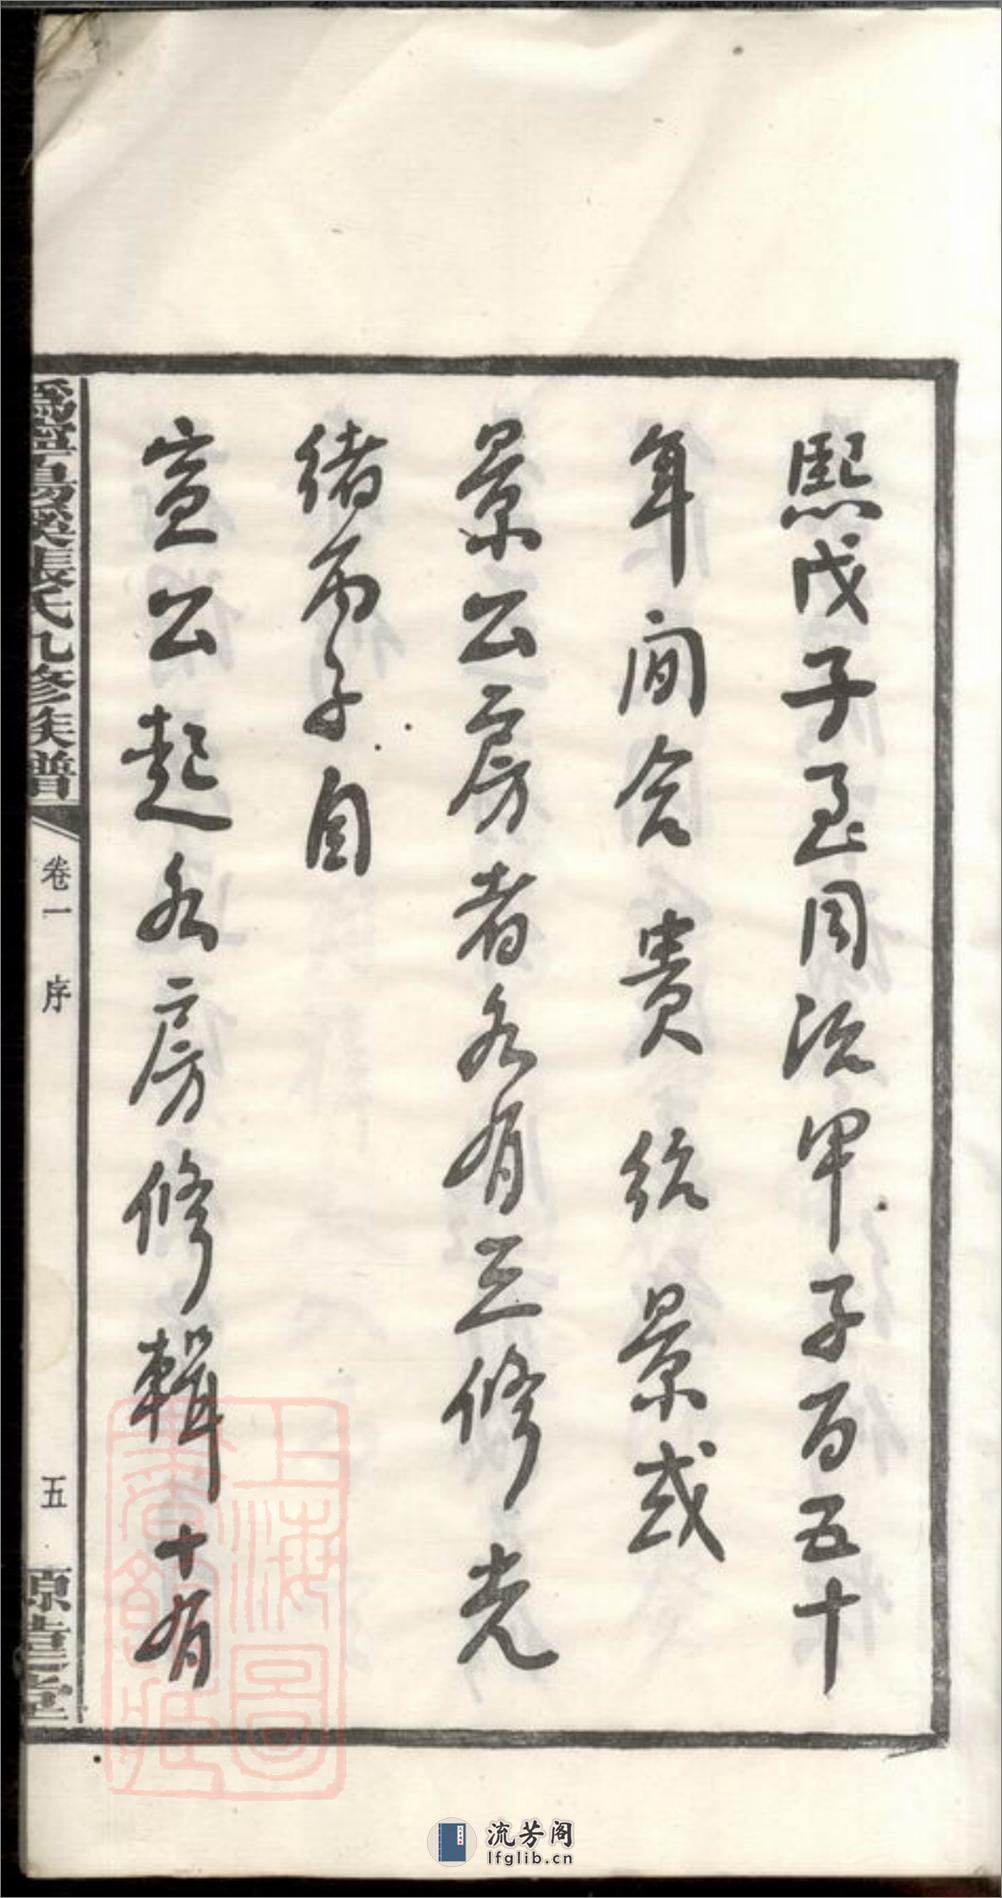 熙戊子至同治甲子百五十
年間合貴統景或
景公房者各有三修光
緒丙子自
宣公起各房修輯十有
溈寧湯溪張氏九修族譜
卷一 序
五
上海圖書館藏
流芳阁
lfglib.cn